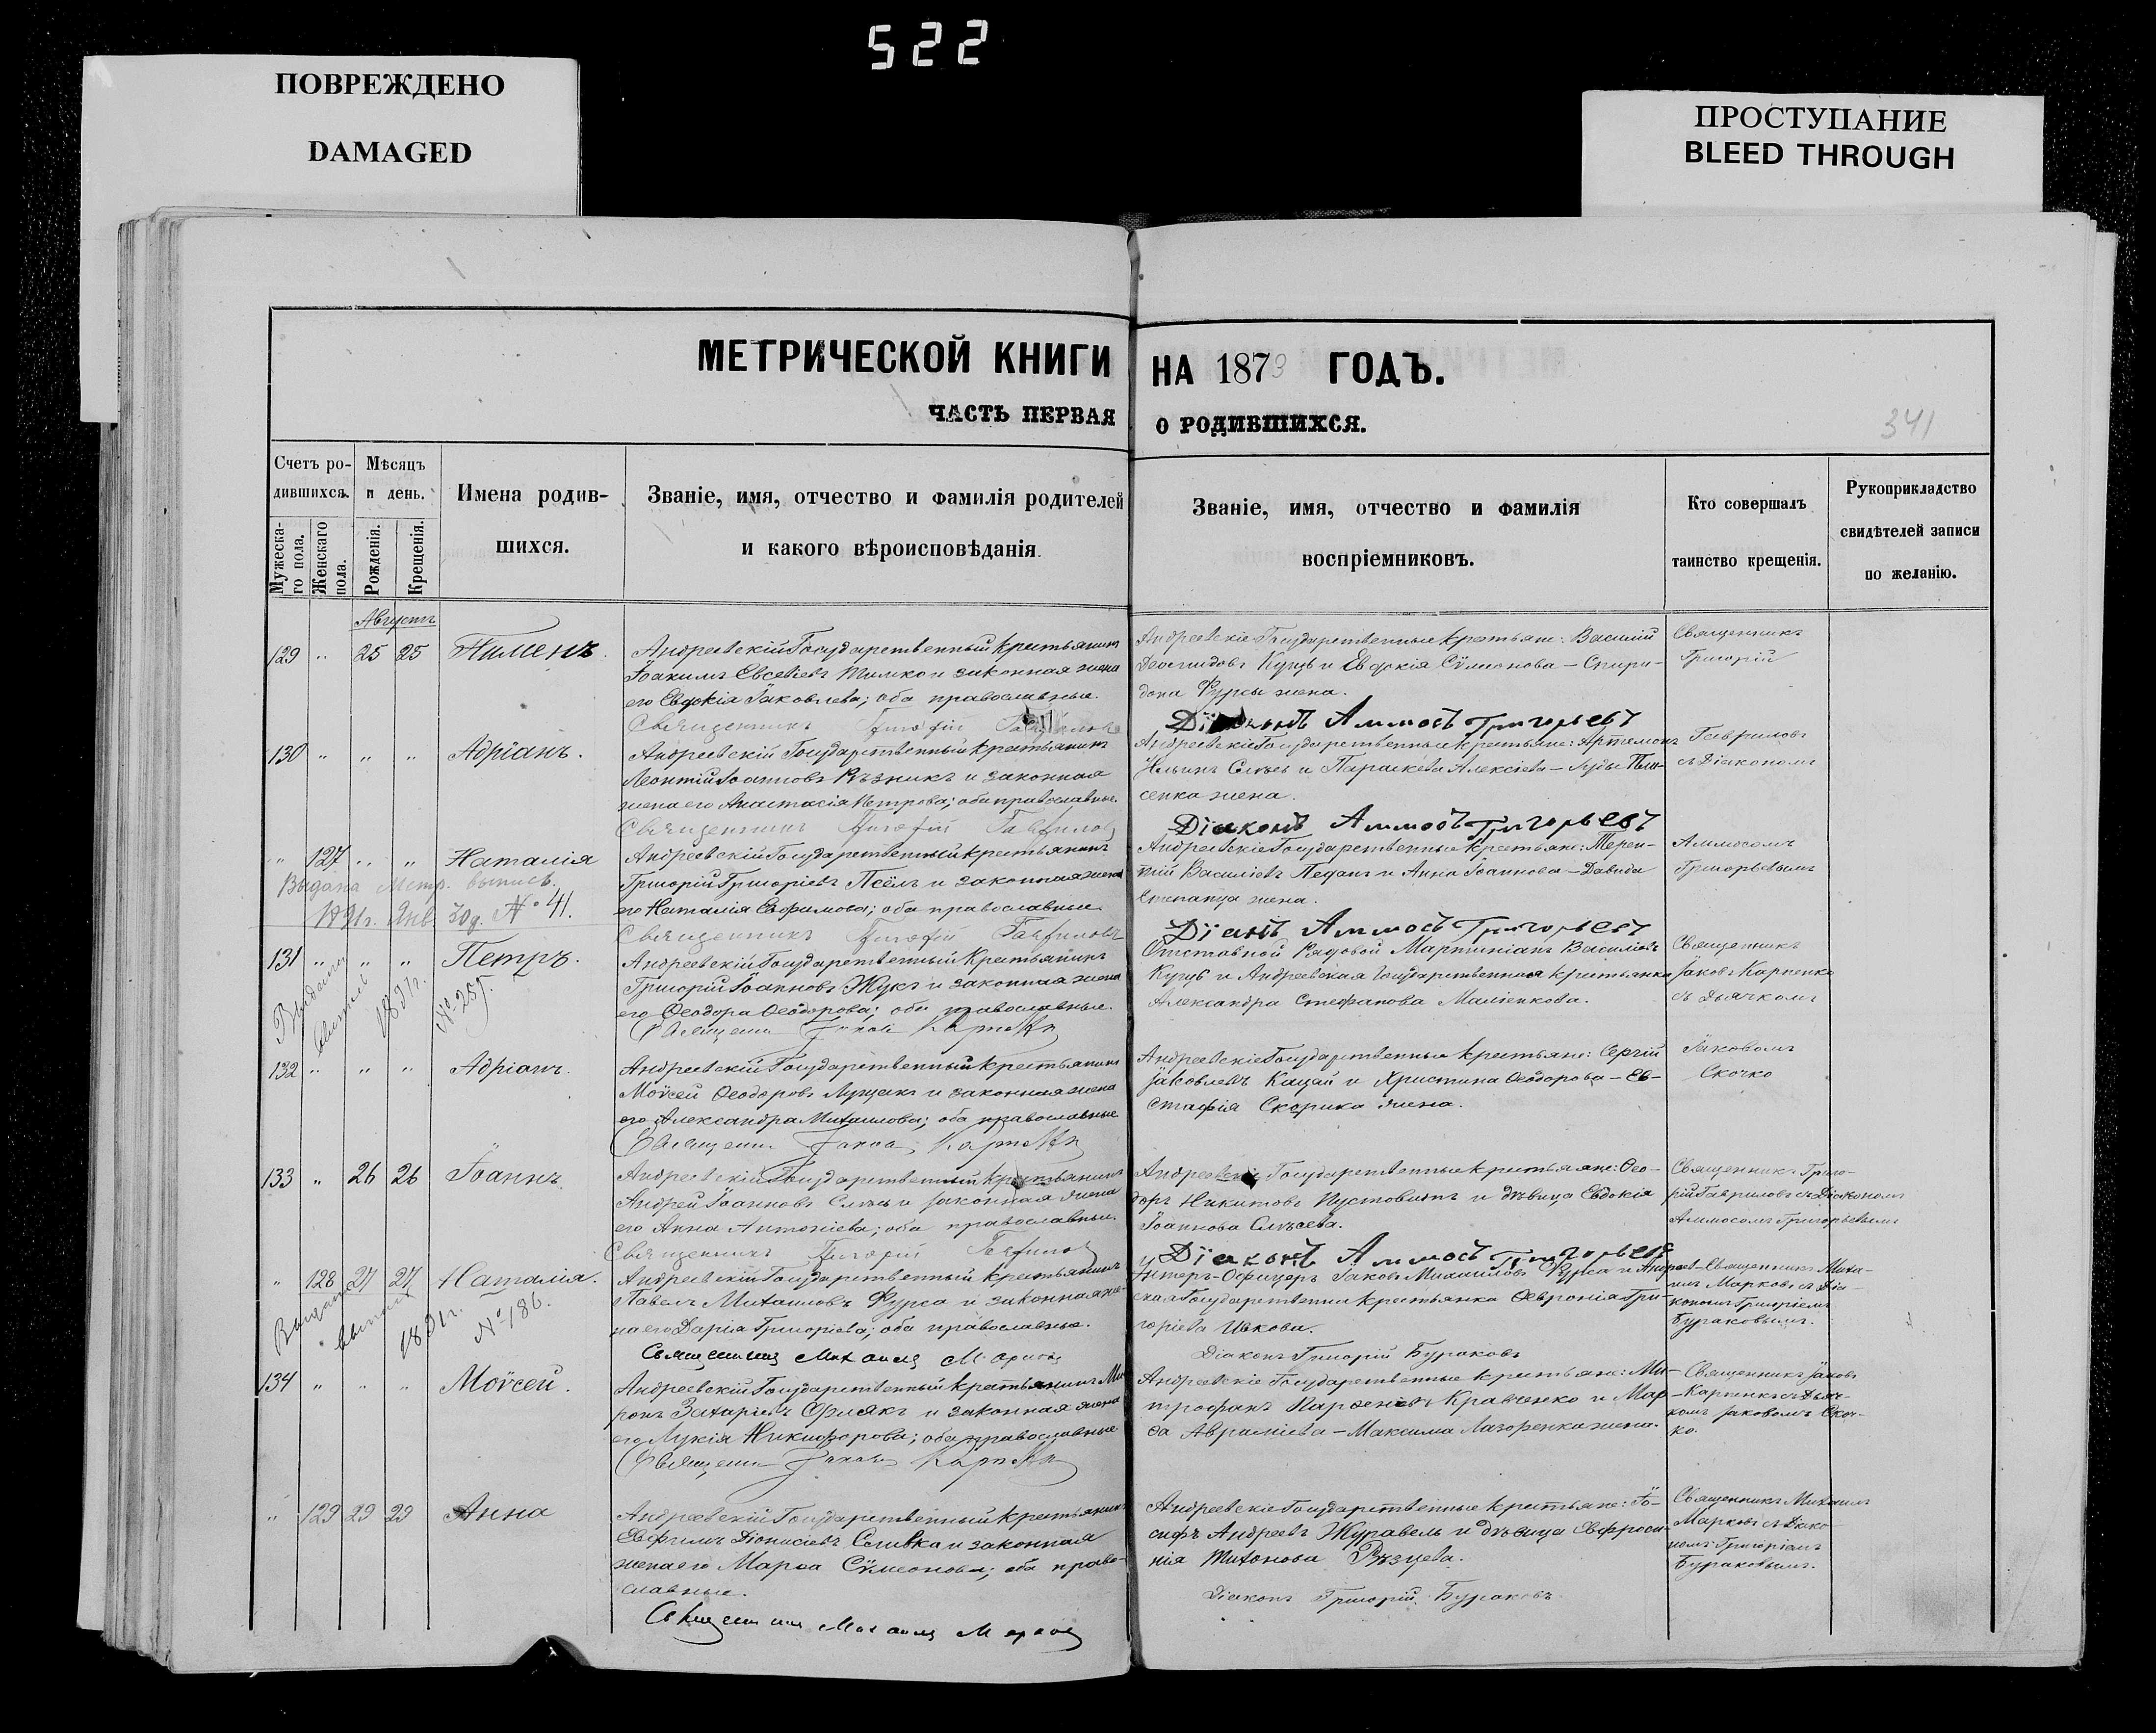 522
ПОВРЕЖДЕНО
DAMAGED
ПРОСТУПАНИЕ
BLEED THROUGH
МЕТРИЧЕСКОЙ КНИГИ НА 1873 ГОДЪ.
ЧАСТЬ ПЕРВАЯ О РОДИВШИХСЯ.
341
Счетъ ро-
дившихся.
Мужеска-
го пола.
Женскаго
пола.
Мѣсяцъ
и день.
Рожденія.
Крещенія.
Имена родив-
шихся.
Званіе, имя, отчество и фамилія родителей
и какого вѣроисповѣданія.
Званіе, имя, отчество и фамилія
воспріемниковъ.
Кто совершалъ
таинство крещенія.
Рукоприкладство
свидѣтелей записи
по желанію.
Августъ
129 " 25 25 Пименъ.
Андреевскій Государственный крестьянинъ
Іоакимъ Евсевіевъ Тимко и законная жена
его Евдокія Іаковлева; оба православные.
Священникъ Григорій Гавриловъ
Андреевскіе Государственные крестьяне: Василій
Куцъ и Евдокія Сѵмеонова – Спири-
дона Фурсы жена.
Діаконъ Аммосъ Григорьевъ
Священникъ
Григорій
130 " " " Адріанъ.
Андреевскій Государственный крестьянинъ
Леонтій Іоанновъ Рѣзникъ и законная
жена его Анастасія Петрова; оба православные.
Священникъ Григорій Гавриловъ
Андреевскіе Государственные крестьяне: Артемонъ
Ильинъ и Параскева Алексіева – Іуды
сенка жена.
Діаконъ Аммосъ Григорьевъ
Гавриловъ
съ Діакономъ
" 127 " " Наталія
Выдана метр. выпись.
1891г. Янв. 30д. № 41.
Андреевскій Государственный крестьянинъ
Григорій Григоріевъ Псёлъ и законная жена
его Наталія Евфимова; оба православные.
Священникъ Григорій Гавриловъ
Андреевскіе Государственные крестьяне: Терен-
тій Василіевъ Педанъ и Анна Іоаннова – Давида
Степанца жена.
Діаконъ Аммосъ Григорьевъ
Аммосомъ
Григорьевымъ
131 " " " Петръ.
Выдана
выпись
1891г.
№ 257.
Андреевскій Государственный крестьянинъ
Григорій Іоанновъ Жукъ и законная жена
его Ѳеодора Ѳеодорова; оба православные.
Священникъ Іаковъ Карпенко
Отставной Рядовой Мартиніанъ Василіевъ
Куцъ и Андреевская Государственная крестьянка
Александра Стефанова Маліенкова.
Священникъ
Іаковъ Карпенко
съ дьячкомъ
132 " " " Адріанъ.
Андреевскій Государственный крестьянинъ
Моѵсей Ѳеодоровъ Луцакъ и законная жена
его Александра Михаилова; оба православные
Священникъ Іаковъ Карпенко
Андреевскіе Государственные крестьяне: Сергій
Іаковлевъ Кацай и Христина Ѳеодорова – Ев-
стафія Скорика жена.
Іаковомъ
Скочко
133 " 26 26 Іоаннъ.
Андреевскій Государственный крестьянинъ
Андрей Іоанновъ и законная жена
его Анна Антоніева; оба православные.
Священникъ Григорій Гавриловъ
Андреевскіе Государственные крестьяне: Ѳео-
доръ Никитовъ Пустовитъ и дѣвица Евдокія
Іоаннова
Діаконъ Аммосъ Григорьевъ
Священникъ Григо-
рій Гавриловъ съ Діакономъ
Аммосомъ Григорьевымъ
" 128 27 27 Наталія.
Выдана
выпись
1891г.
№ 186.
Андреевскій Государственный крестьянинъ
Павелъ Михаиловъ Фурса и законная же-
на его Дарія Григоріева; оба православные.
Священникъ Михаилъ Марковъ
Унтеръ-Офицеръ Іаковъ Михаиловъ Фурса и Андреев-
ская Государственная крестьянка Ѳевронія Гри-
горіева Ивкова.
Діаконъ Григорій Бураковъ
Священникъ Миха-
илъ Марковъ съ Діа-
кономъ Григоріемъ
Бураковымъ.
134 " " " Моѵсей.
Андреевскій Государственный крестьянинъ Ми-
ронъ Захаріевъ и законная жена
его Лукія Никифорова; оба православные
Священникъ Іаковъ Карпенко
Андреевскіе Государственные крестьяне: Ми-
трофанъ Парѳеніевъ Кравченко и Мар-
ѳа Авраміева – Максима Лазоренка жена.
Священникъ Іаковъ
Карпенко съ Дьяч-
комъ Іаковомъ Скоч-
ко.
" 129 29 29 Анна
Андреевскій Государственный крестьянинъ
Евфимъ Діонисіевъ Сливка и законная
жена его Марѳа Сѵмеонова; оба право-
славные.
Священникъ Михаилъ Марковъ
Андреевскіе Государственные крестьяне: Іо-
сифъ Андреевъ Журавель и дѣвица Евфроси-
нія Тихонова Рѣзцева.
Діаконъ Григорій Бураковъ
Священникъ Михаилъ
Марковъ съ Діако-
номъ Григоріемъ
Бураковымъ.